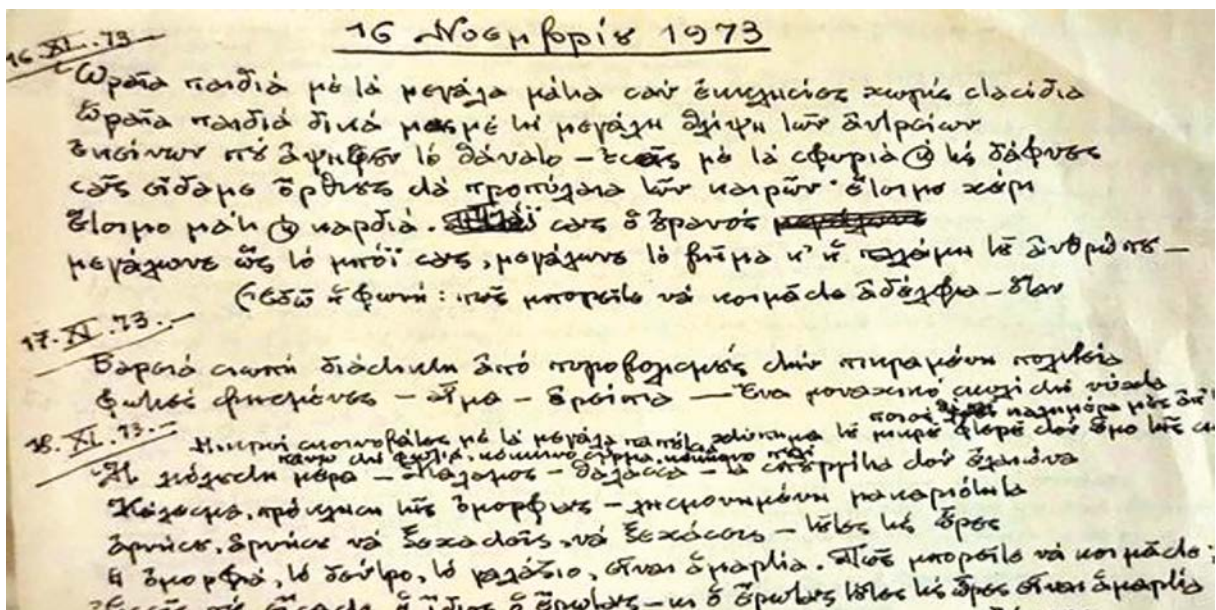 16 Νοεμβρίου 1973
16.XI.73
Ὡραῖα παιδιά μὲ τὰ μεγάλα μάτια σὰν ἐκκλησίες χωρὶς στασίδια
Ὡραῖα παιδιά δικά μας μὲ τὴ μεγάλη θλίψη τῶν ἀντρείων
ἐκείνων πού ἀψήφησαν τὸ θάνατο – ἐσᾶς μὲ τὰ σφυριά καὶ τὶς δάφνες
σᾶς εἴδαμε ὄρθιους στὰ προπύλαια τῶν καιρῶν· ἕτοιμο χέρι
ἕτοιμο μάτι καὶ καρδιά. σας ὁ οὐρανός
μεγάλωνε ὥς τὸ μπόϊ σας, μεγάλωνε τὸ βῆμα κ' ἡ παλάμη τοῦ ἀνθρώπου –
(Ἐδῶ ἡ φωνή: πῶς μπορεῖτε νὰ κοιμᾶστε ἀδέλφια –
17.XI.73.–
Βαρειά σιωπή διάτρητη ἀπό πυροβολισμούς στὴν πικραμένη πολιτεία
Φωτιές σβησμένες – αἷμα – ἐρείπια – Ἕνα μοναχικό σκυλί στὴ νύχτα
ποιός καλημέρα μὲς ἀπ'
18.XI.73.–
Μικροί σκοινοβάτες μὲ τὰ μεγάλα παπούτσια, χτύπημα τοῦ μικροῦ στὸν ὦμο τῆς
πάνω στὴ φωτιά, κόκκινο σύρμα, κόκκινο πουλί
Ἡ μέρα – Κάλαμος – Θάλασσα – τὰ στὸν ἐλαιώνα
Κάλεσμα, πρόκληση τῆς ὀμορφιᾶς – λησμονημένη μακαριότητα
ἀρνήσου, ἀρνήσου νὰ ξεχαστεῖς, νὰ ξεχάσεις – τέτοιες ὧρες
ἡ ὀμορφιά, τὸ δέντρο, τὸ γαλάζιο, εἶναι ἁμαρτία. Πῶς μπορεῖτε νὰ κοιμᾶστε;
ὁ ἴδιος ὁ ἔρωτας – κι ὁ ἔρωτας τέτοιες ὧρες εἶναι ἁμαρτία